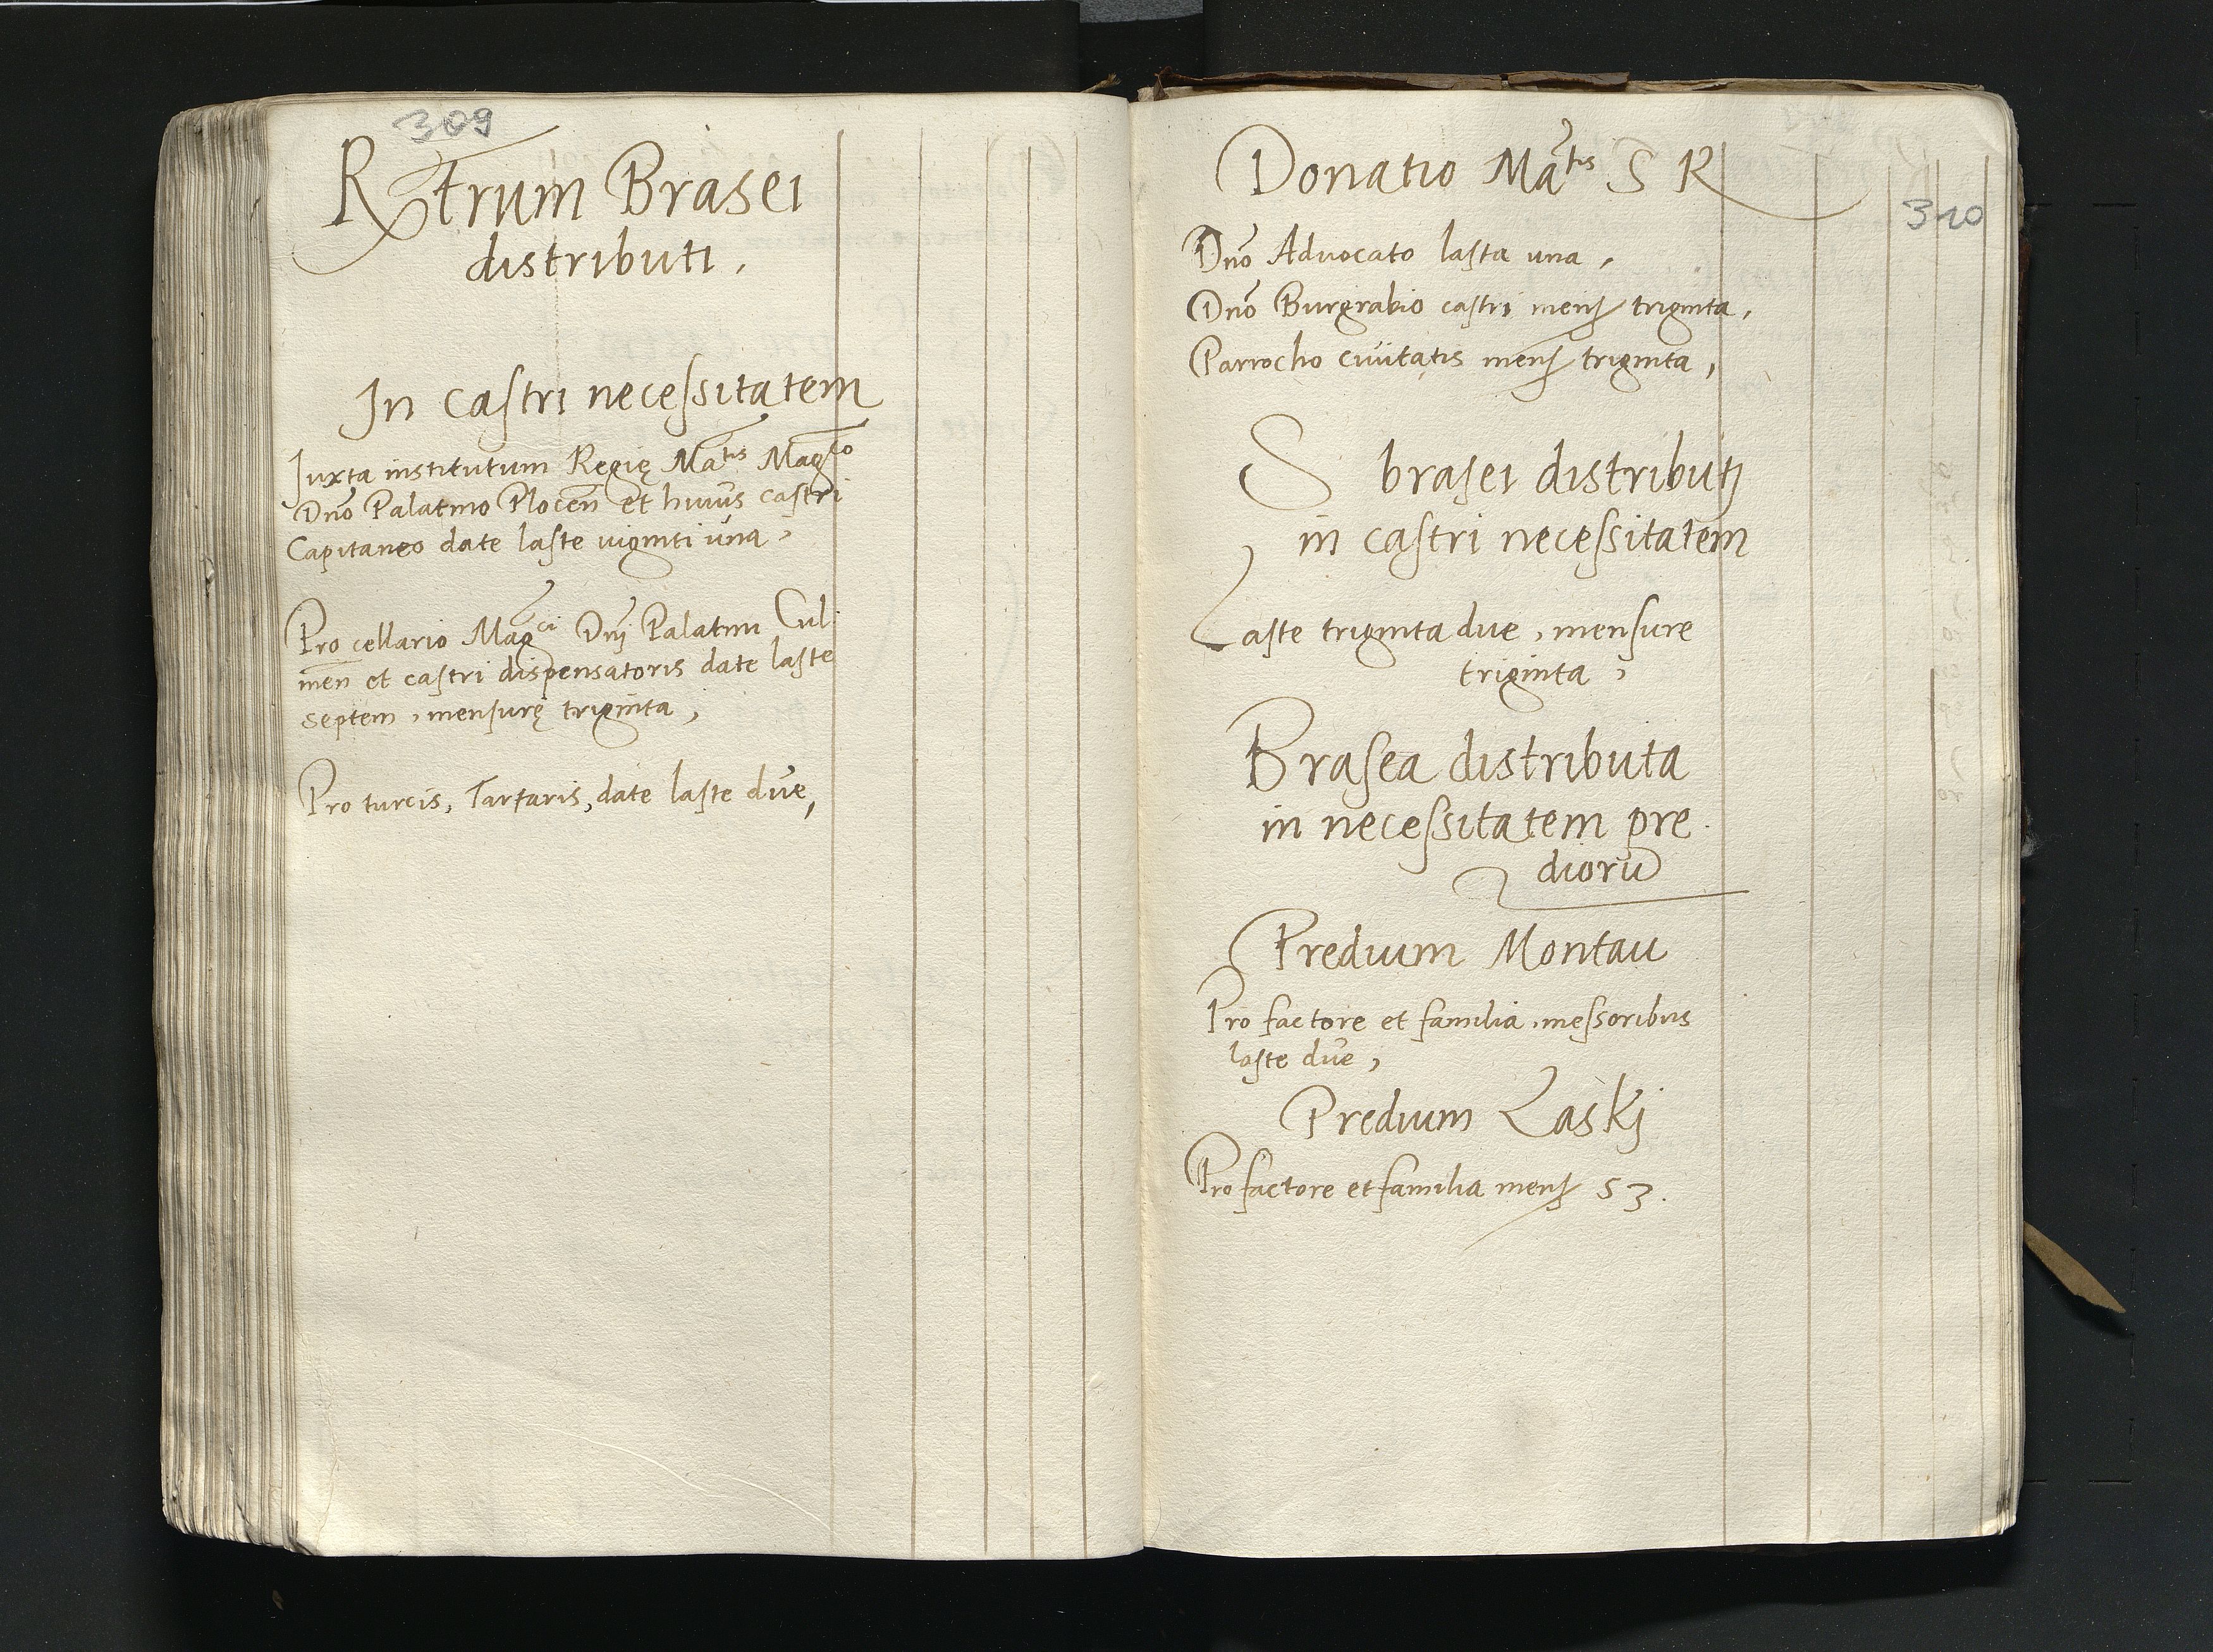 309
Rtrum Brasei
distributi.
In castri necessitatem
Iuxta institutum Regię Matis Magco
Dno Palatino Plocen et huius castri
Capitaneo date laste viginti una,
Pro cellario Magci Dnj Palatini Cul
men et castri dispensatoris date laste
septem, mensurę triginta,
Pro turcis, Tartaris, date laste due,
310
Donatio Matis S R
Dno Advocato lasta una,
Dno Burgrabio castri mens triginta,
Parrocho civitatis mens triginta,
S brasei distributj
in castri necessitatem
Laste triginta due, mensure
triginta,
Brasea distributa
in necessitatem pre
dioru
Predium Montau
Pro factore et familia, messoribus
laste due,
Predium Laskj
Pro factore et familia mens 53.